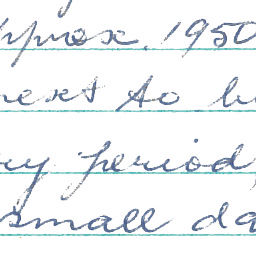 pprox. 1950
next to b
ry period,
small da